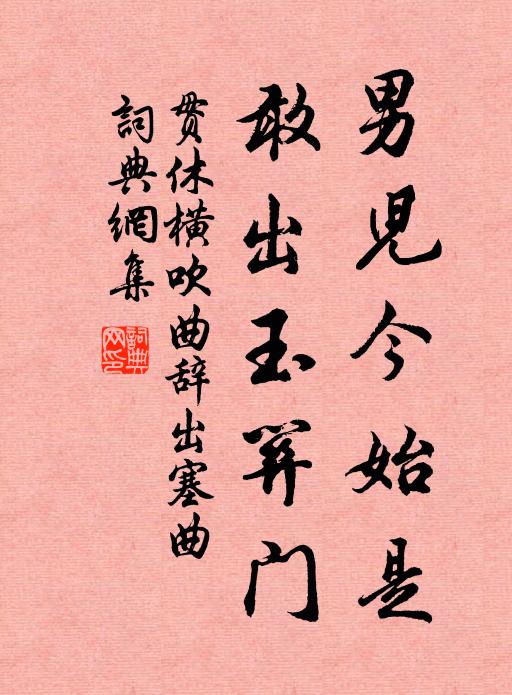 男兒今始是
敢出玉關门
贯休橫吹曲辞出塞曲
詞典網集
詞典网印